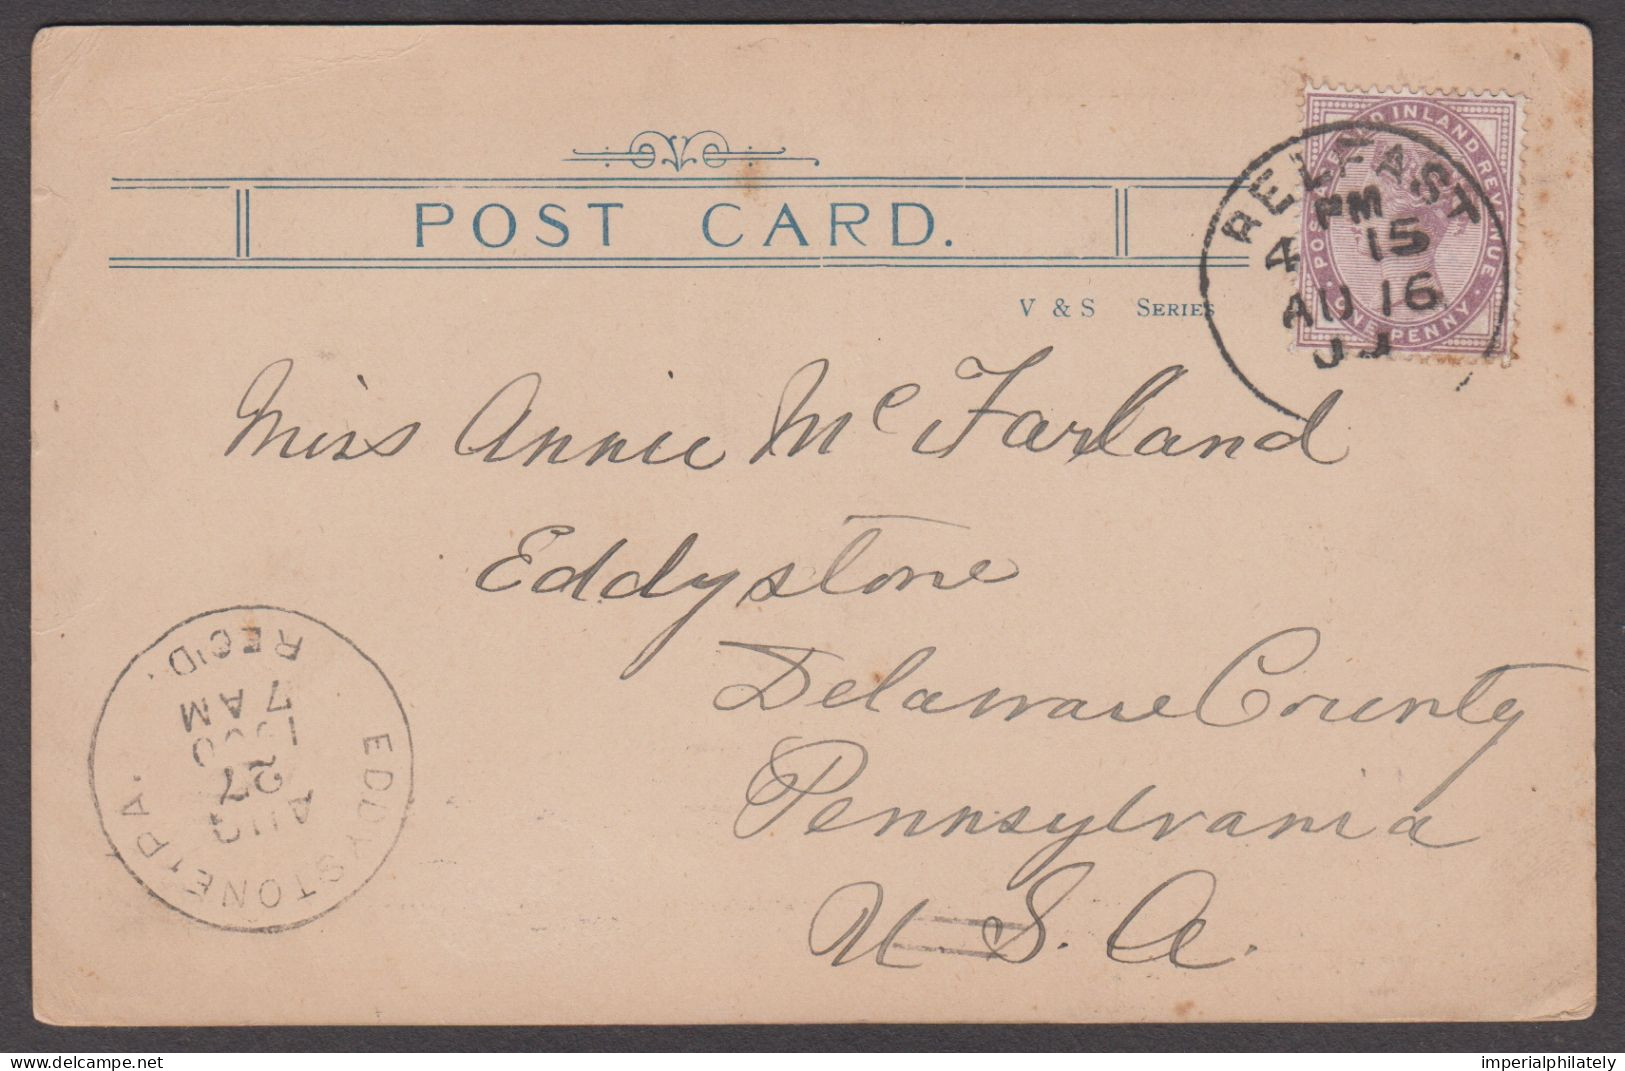 POST CARD.
V & S SERIES
BELFAST
PM
4 15
AU 16
POSTAGE AND INLAND REVENUE
ONE PENNY
Miss Annie McFarland
Eddystone
Delaware County
Pennsylvania
U.S.A.
EDDYSTONE, PA.
AUG
27
1900
7 AM
REC'D.
Delcampe.net
imperialphilately